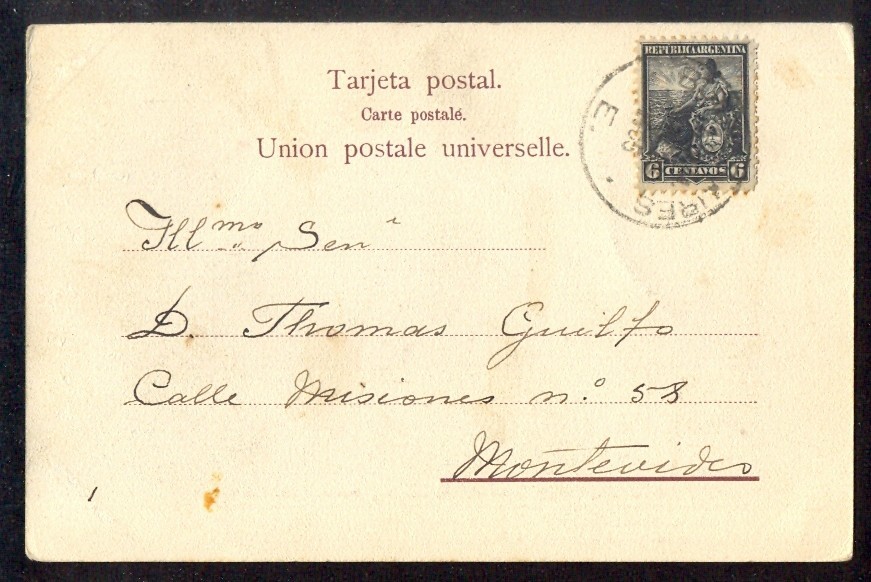 Tarjeta postal.
Carte postale.
Union postale universelle.
REPÚBLICA ARGENTINA
6 CENTAVOS 6
AIRES
Illmo Senr
D. Thomas Guilfo
Calle Misiones n.º 58
Montevideo